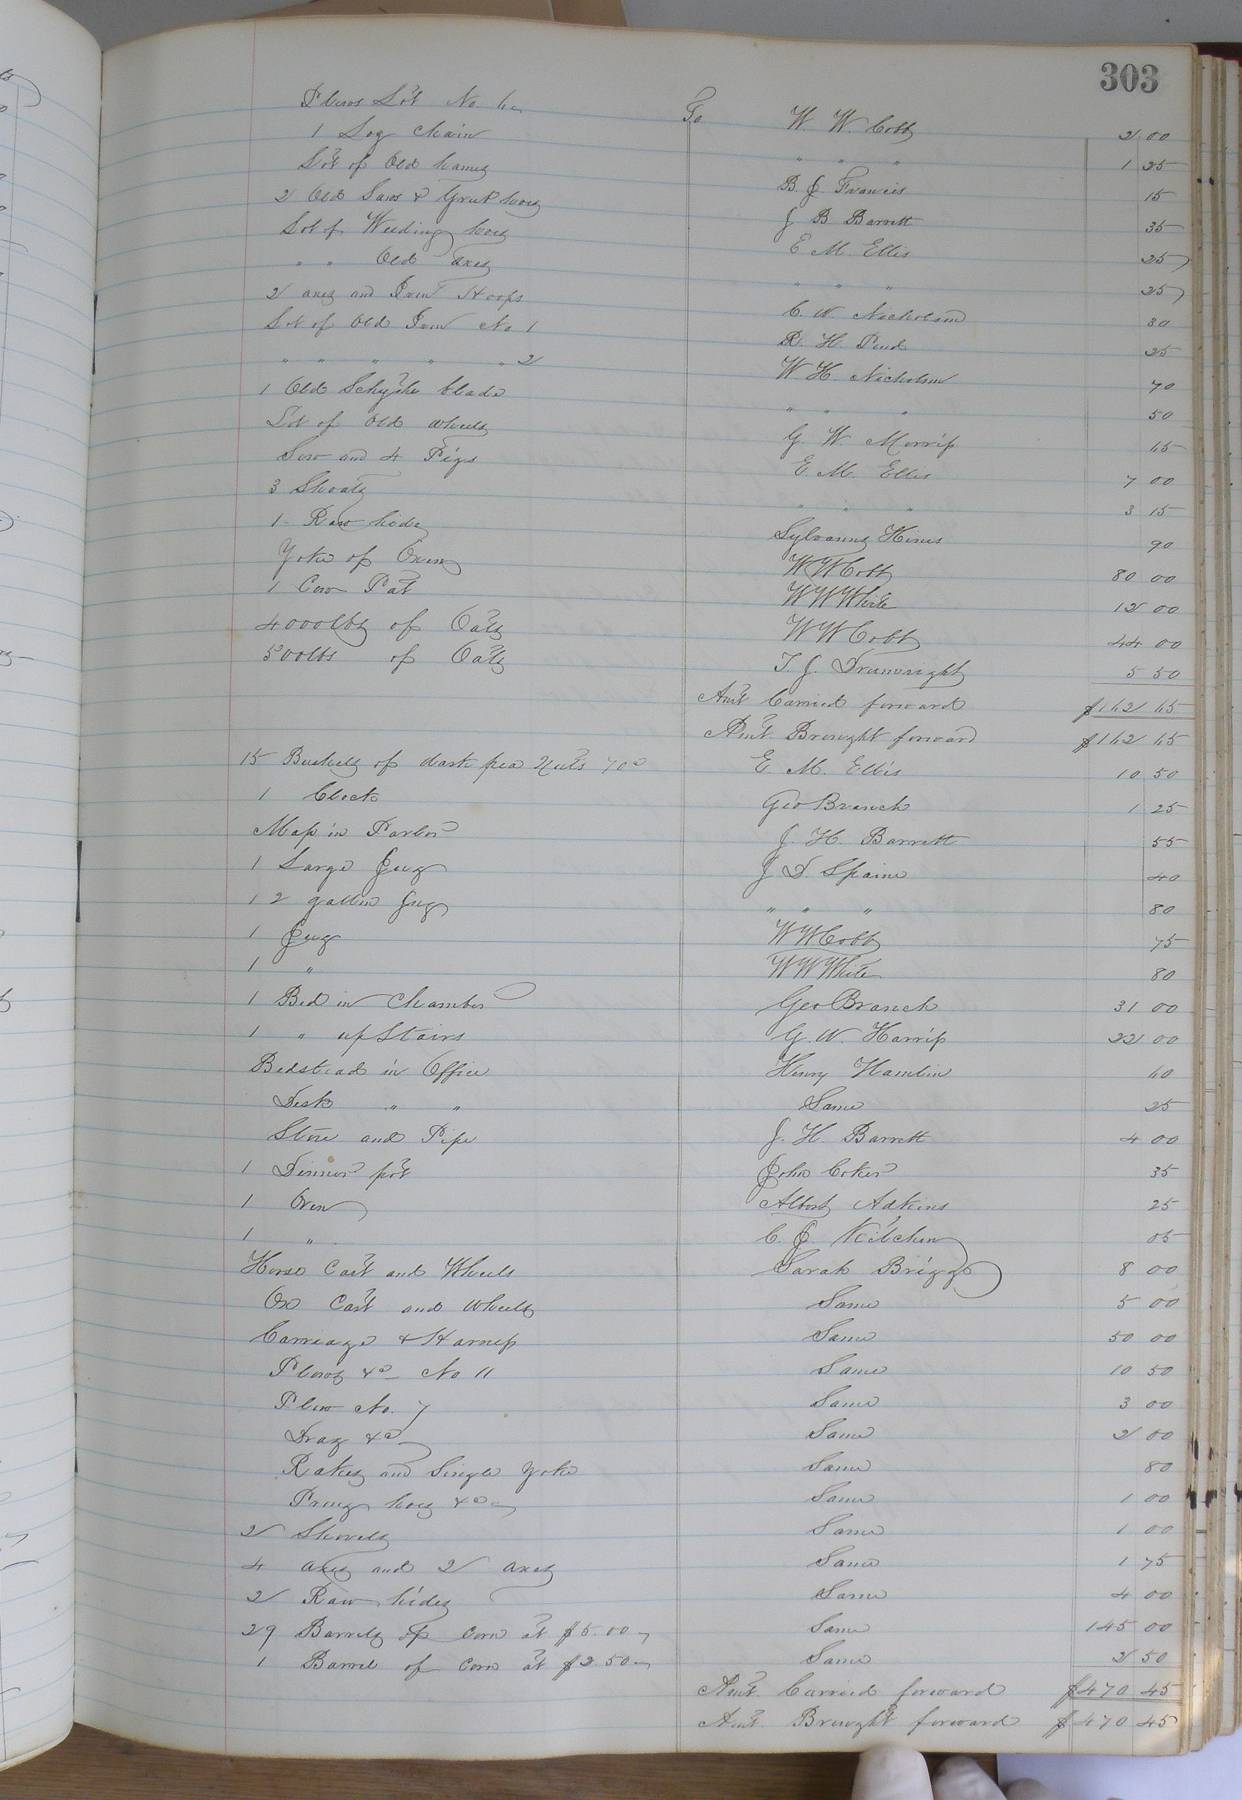 303
Plows Lot No. 6 To W. W. Cobb 2 00
1 Log Chain " " " 1 25
Lot of Old hames B. J. Francis 15
2 Old Saws & Grub hoes J B Barrett 35
Lot of Weeding hoes E. M. Ellis 25
" " Old axes " " " 25
2 axes and Iron Hoops C. W Nicholson 30
Lot of Old Iron No 1 R. H. Pond 25
" " " " " 2 W H. Nicholson 70
1 Old Schythe blade " " " 50
Lot of Old wheels G. W. Morriss 65
Sow and 4 Pigs E. M. Ellis 7 00
3 Shoats " " " 3 15
1 Raw hide Sylvanus Hines 90
Yoke of Oxen W W Cobb 80 00
1 Cow Pat W W White 12 00
4000 lbs of Oats W W Cobb 44 00
500 lbs of Oats T. J. Drumwright 5 50
Amt Carried forward $162 65
Amt. Brought forward $162 65
15 Bushels of dark pea Nuts 70c E M. Ellis 10 50
1 Clock Geo Branch 1 25
Map in Parlor J. H. Barrett 55
1 Large Jug J D. Spain 40
1 2 gallon Jug " " " 80
1 Jug W W Cobb 75
1 " W W White 80
1 Bed in Chamber Geo Branch 31 00
1 " up Stairs G. W. Harriss 22 00
Bedstead in Office Henry Hamlin 60
Desk " " Same 25
Stove and Pipe J. H. Barrett 4 00
1 Dinner pot John Coker 35
1 Oven Albert Adkins 25
1 " C. J. Kitchen 05
Horse Cart and Wheels Sarah Briggs 8 00
Ox Cart and wheels Same 5 00
Carriage & Harness Same 50 00
Plows &c No 11 Same 10 50
Plow No. 7 Same 3 00
Drag &c Same 2 00
Rakes and Single Yoke Same 80
Prong hoes &c Same 1 00
2 Shovels Same 1 00
4 axes and 2 axes Same 1 75
2 Raw hides Same 4 00
29 Barrels of Corn at $5.00 Same 145 00
1 Barrel of Corn at $2.50 Same 2 50
Amt. Carried forward $470 45
Amt. Brought forward $470 45